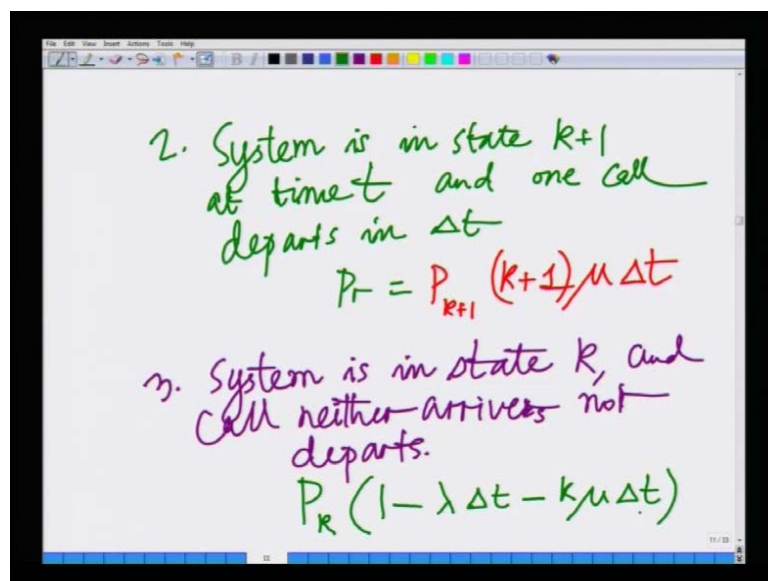 File Edit View Insert Actions Tools Help
B I
2. System is in state k+1
at time t and one call
departs in Δt
Pr = P_{k+1} (k+1) μ Δt
3. System is in state k, and
call neither arrives not
departs.
P_k (1 - λ Δt - kμ Δt)
11 / 33
11